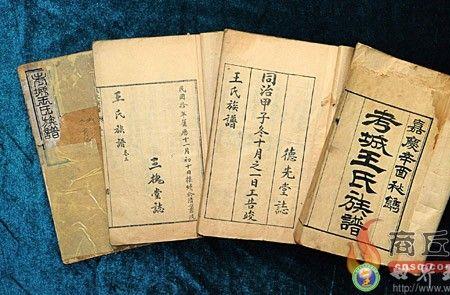 考城王氏族譜
三槐堂誌
民國拾年夏曆十一月初十日
王氏族譜
德先堂誌
同治甲子冬十月之一日工告竣
王氏族譜
嘉慶辛酉秋鐫
考城王氏族譜
商丘
cnsq.co
世界王
http://www.w